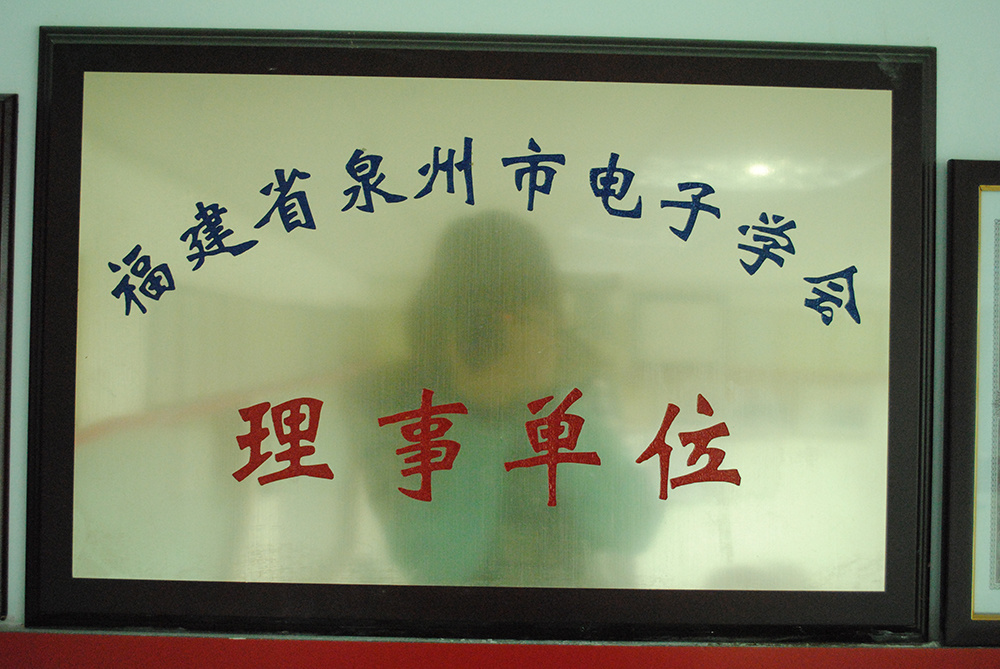 福建省泉州市电子学会
理事单位